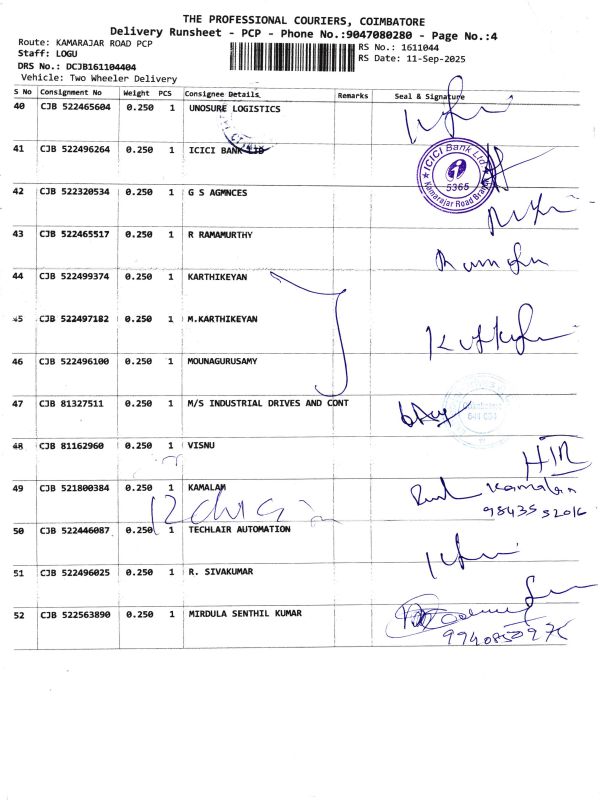 THE PROFESSIONAL COURIERS, COIMBATORE
Delivery Runsheet - PCP - Phone No.:9047080280 - Page No.:4
Route: KAMARAJAR ROAD PCP
RS No.: 1611044
Staff: LOGU
RS Date: 11-Sep-2025
DRS No.: DCJB161104404
Vehicle: Two Wheeler Delivery
S No Consignment No Weight PCS Consignee Details Remarks Seal & Signature
40 CJB 522465604 0.250 1 UNOSURE LOGISTICS
41 CJB 522496264 0.250 1 ICICI BANK LTD
ICICI Bank Ltd
5365
Kamarajar Road Branch
42 CJB 522320534 0.250 1 G S AGMNCES
43 CJB 522465517 0.250 1 R RAMAMURTHY
44 CJB 522499374 0.250 1 KARTHIKEYAN
45 CJB 522497182 0.250 1 M.KARTHIKEYAN
46 CJB 522496100 0.250 1 MOUNAGURUSAMY
47 CJB 81327511 0.250 1 M/S INDUSTRIAL DRIVES AND CONT
48 CJB 81162960 0.250 1 VISNU
49 CJB 521800384 0.250 1 KAMALAM
Kamalam
98435 52016
50 CJB 522446087 0.250 1 TECHLAIR AUTOMATION
51 CJB 522496025 0.250 1 R. SIVAKUMAR
52 CJB 522563890 0.250 1 MIRDULA SENTHIL KUMAR